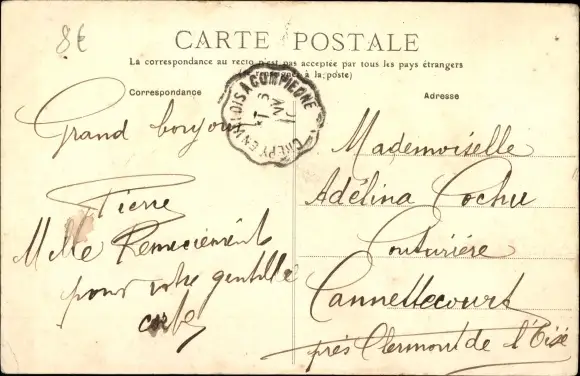 8€
CARTE POSTALE
La correspondance au recto n'est pas acceptée par tous les pays étrangers
à la poste)
Correspondance
Adresse
CREPY-EN-VALOIS A COMPIEGNE
Grand bonjour
Pierre
Mille Remerciement
pour votre gentille
carte
Mademoiselle
Adélina Cochu
Couturière
Cannettecourt
près Clermont de l'Oise